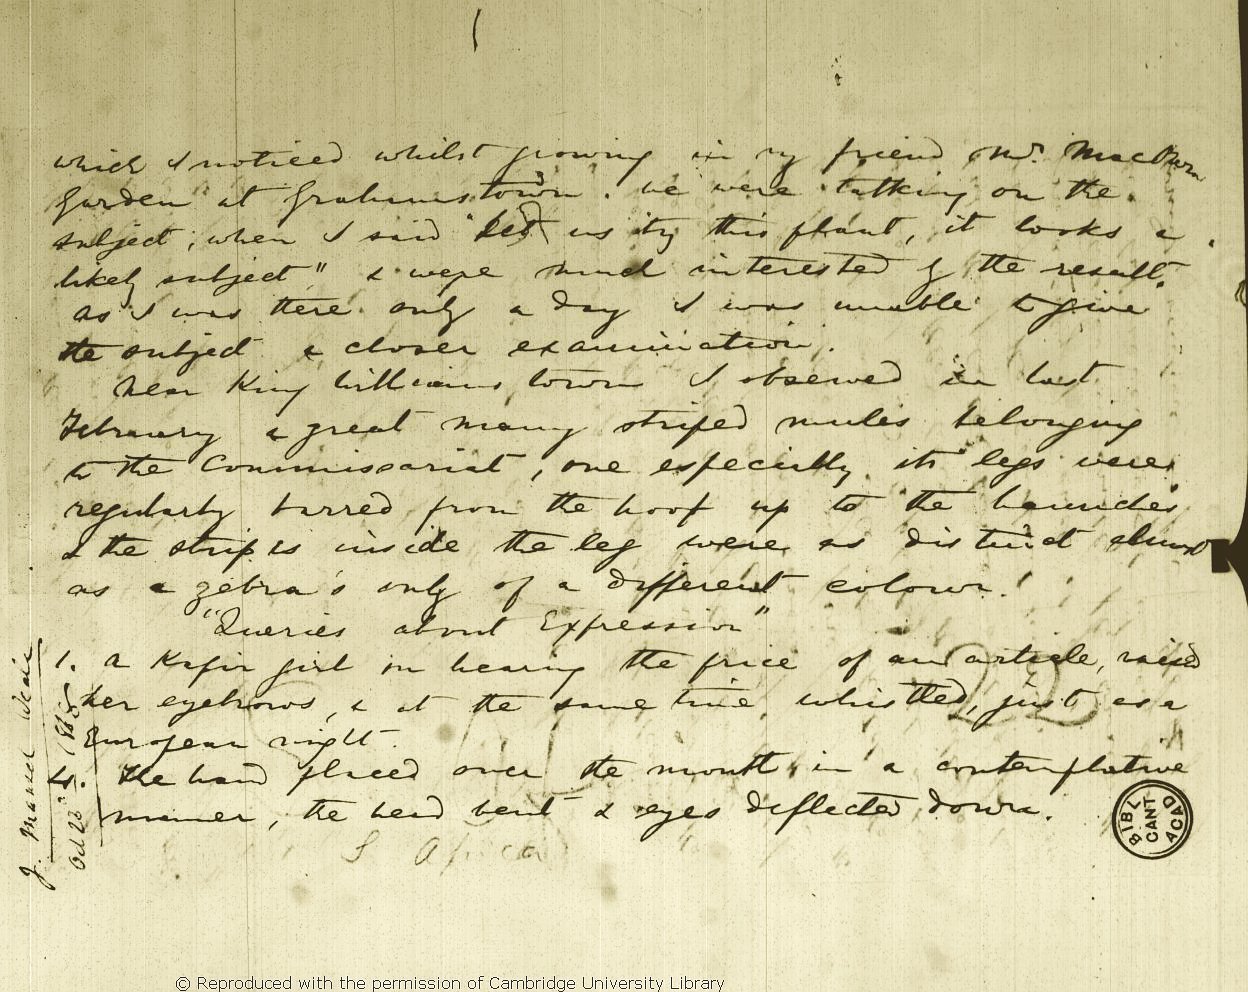 which I noticed whilst growing in my friend Mr. MacOwan
Garden at Grahamstown. we were talking on the
subject, when I said "let us try this plant, it looks a
likely subject" & were much interested of the result.
as I was there only a day I was unable to give
the subject a closer examination.
Near King Williams town I observed in last
February a great many striped mules belonging
to the Commissariat, one especially its legs were
regularly barred from the hoof up to the haunches
& the stripes inside the leg were as distinct almost
as a zebra's only of a different colour!
"Queries about Expression"
1. A Kafir girl on hearing the price of an article, raised
her eyebrows, & at the same time whistled, just as a
European might.
4. The hand placed over the mouth in a contemplative
manner, the head bent & eyes deflected down.
S Africa
J. Mansel Weale
Oct 22d
22
BIBL
CANT
ACAD
© Reproduced with the permission of Cambridge University Library